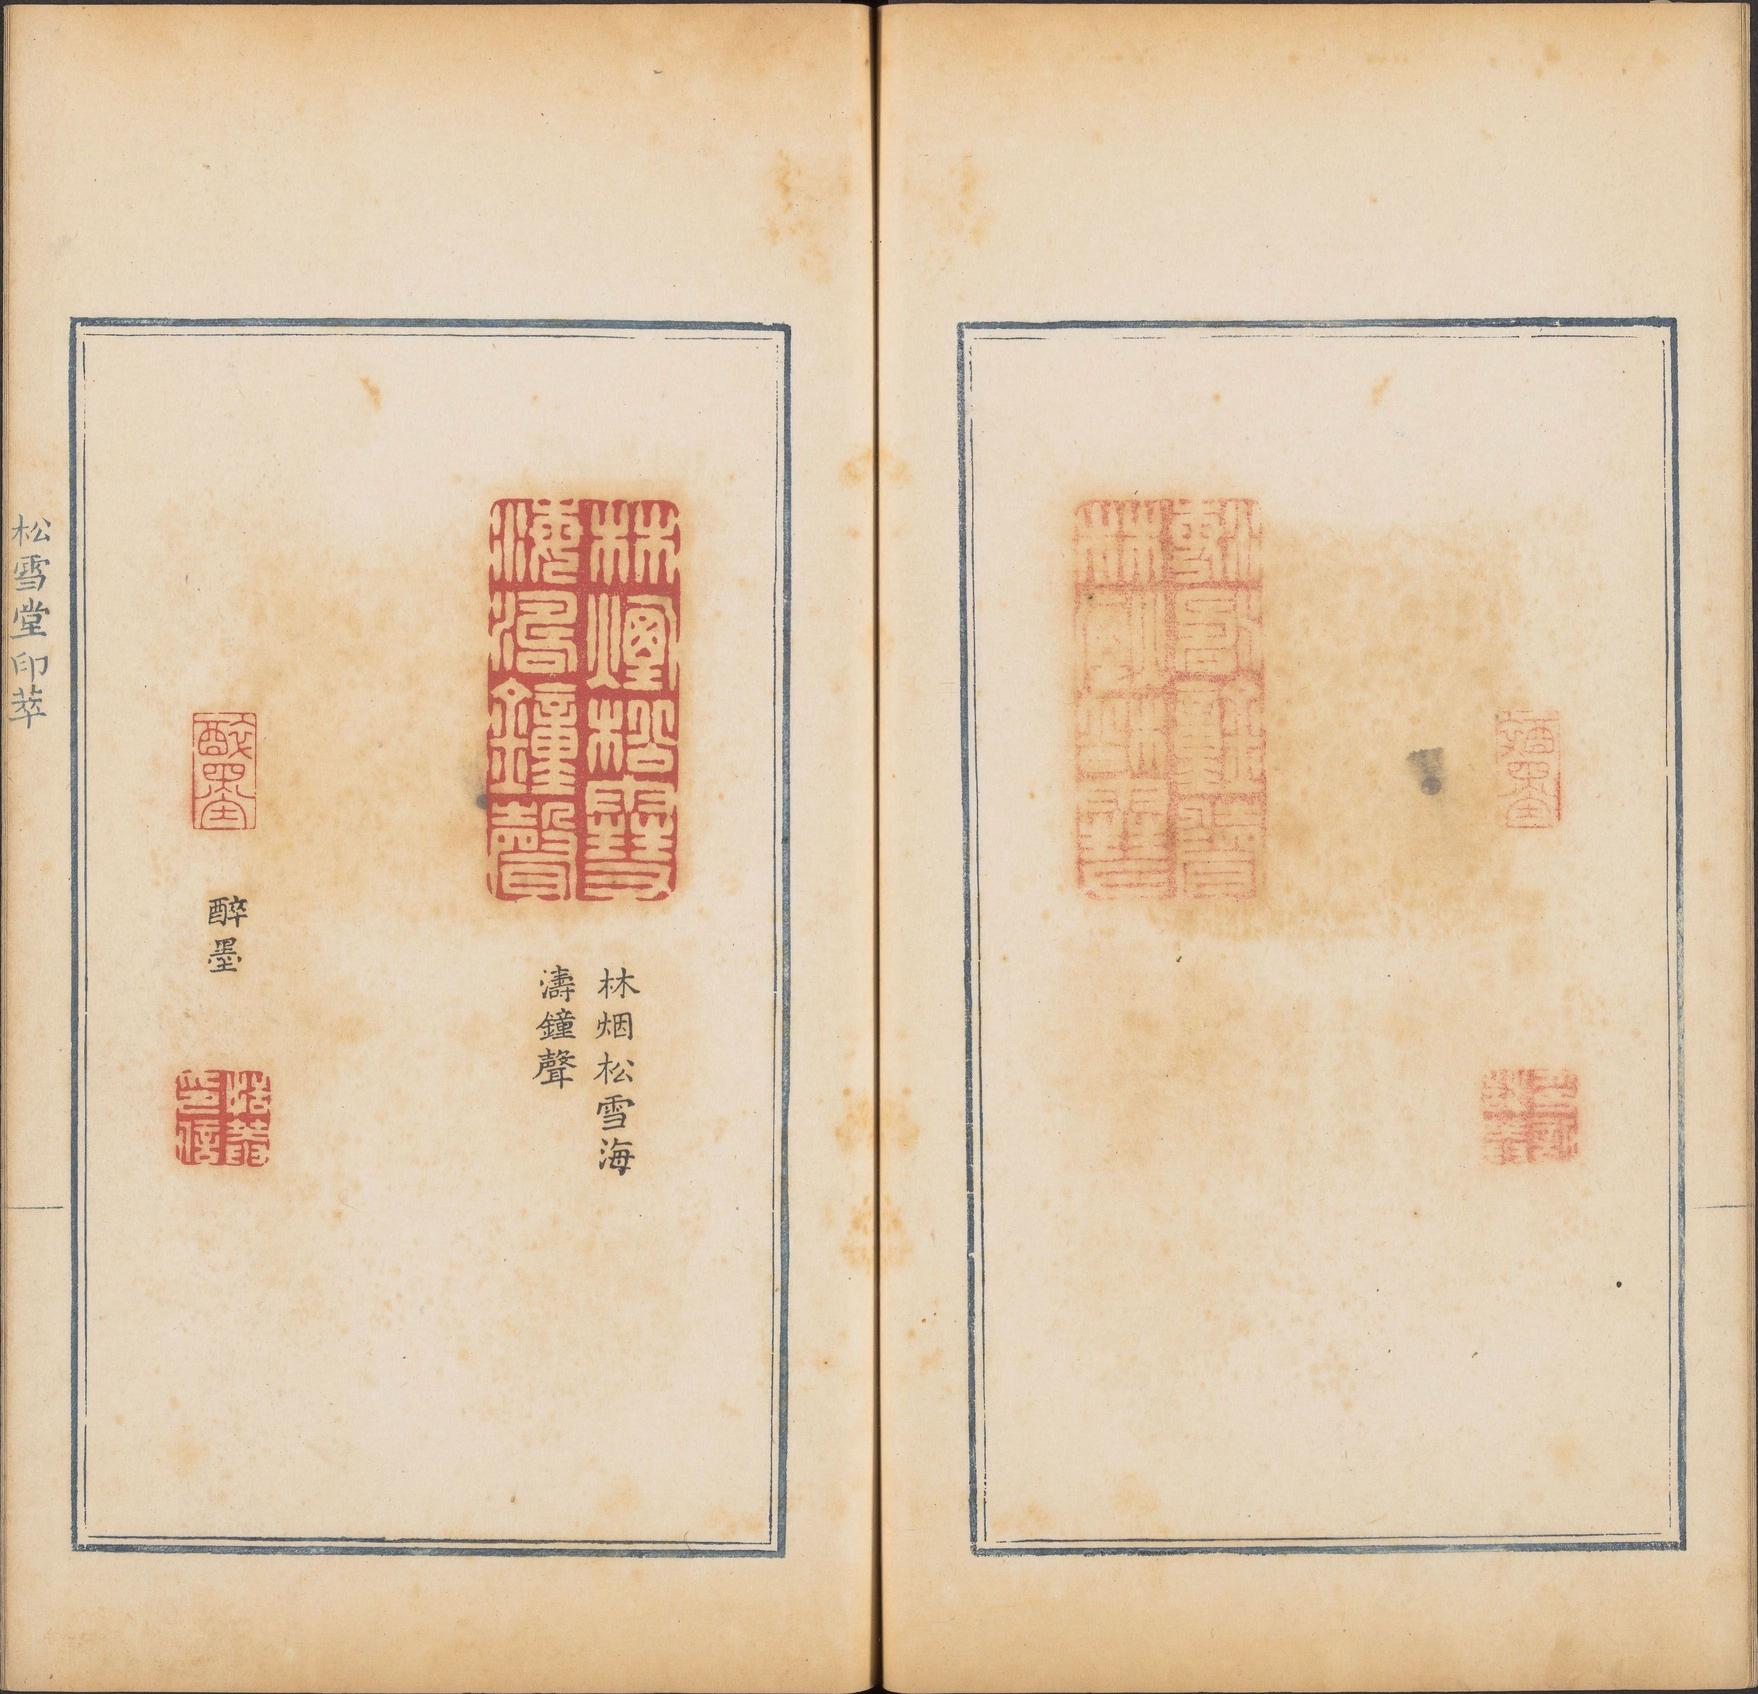 林煙松雪
海濤鐘聲
林烟松雪海
濤鐘聲
醉墨
醉墨
印信
松雪堂印萃